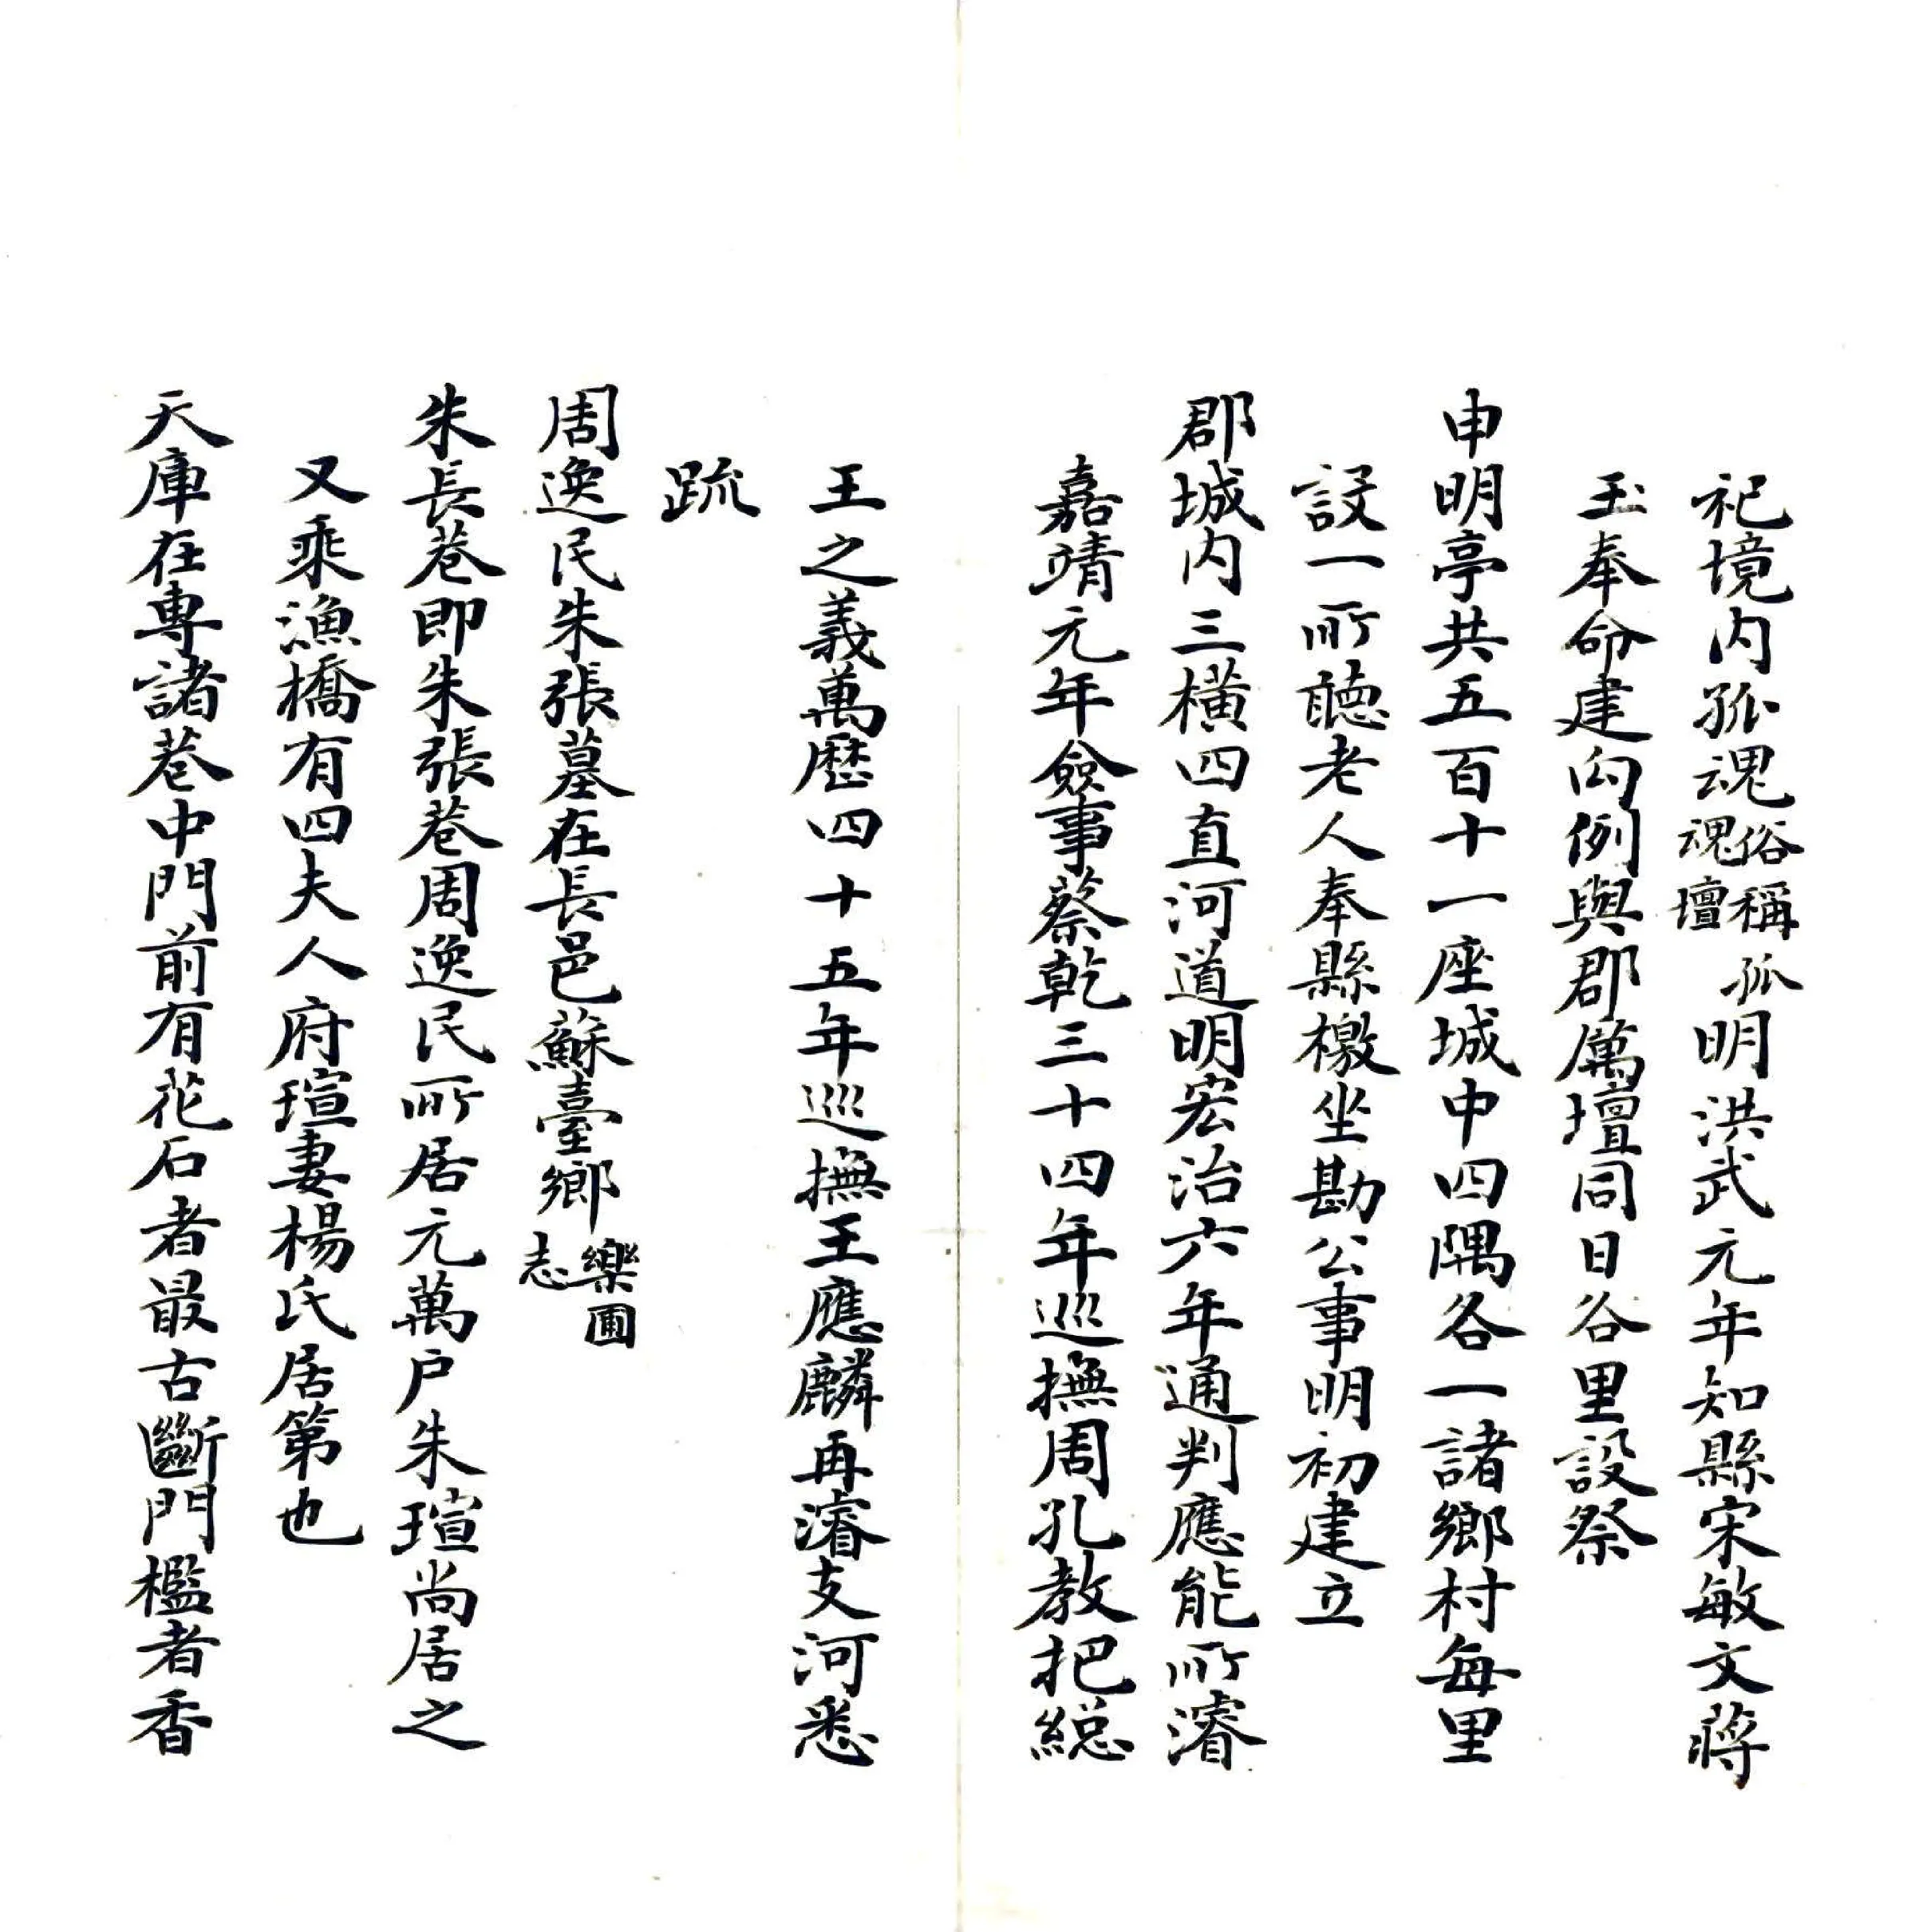 祀境内孤魂俗稱孤魂壇明洪武元年知縣宋敏文蔣
玉奉命建向例與郡厲壇同日谷里設祭
申明亭共五百十一座城中四隅各一諸鄉村每里
設一所聽老人奉縣檄坐勘公事明初建立
郡城内三橫四直河道明宏治六年通判應能所濬
嘉靖元年僉事蔡乾三十四年巡撫周孔教把總
王之義萬歷四十五年巡撫王應麟再濬支河悉
疏
周逸民朱張墓在長邑蘇臺鄉樂圃志
朱長巷即朱張巷周逸民所居元萬户朱瑄尚居之
又乘漁橋有四夫人府瑄妻楊氏居第也
天庫在專諸巷中門前有花石者最古斷門檻者香